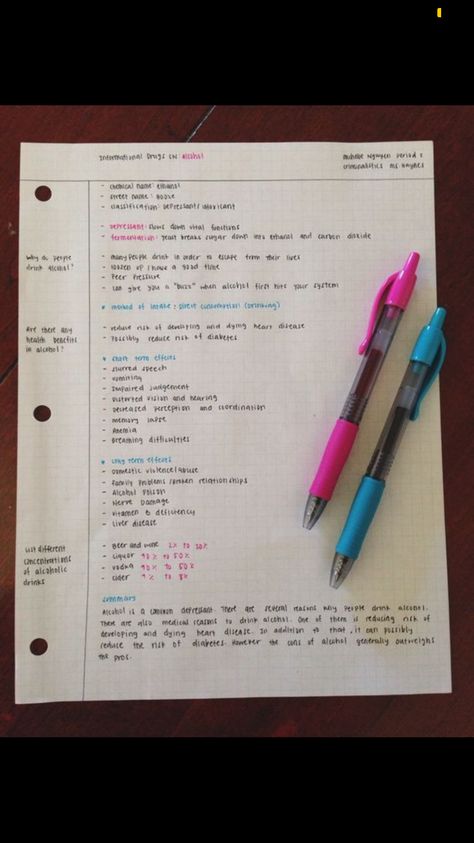 Informational Drugs CN: Alcohol
Michelle Nguyen Period 1
Criminalistics Ms. Haynes
- chemical name: ethanol
- street name: booze
- classification: Depressant/intoxicant
- Depressant: slows down vital functions
- fermentation: yeast breaks sugar down into ethanol and carbon dioxide
Why do people drink alcohol?
- many people drink in order to escape from their lives
- loosen up / have a good time
- Peer Pressure
- can give you a "buzz" when alcohol first hits your system
* method of intake: direct consumption (drinking)
Are there any health benefits in alcohol?
- reduce risk of developing and dying heart disease
- Possibly reduce risk of diabetes
* short term effects
- slurred speech
- vomiting
- Impaired judgement
- Distorted vision and hearing
- Decreased perception and coordination
- memory lapse
- Anemia
- Breathing difficulties
* Long term effects
- Domestic violence/abuse
- Family problems / broken relationships
- Alcohol Poison
- Nerve Damage
- Vitamin B deficiency
- Liver disease
List different concentrations of alcoholic drinks
- Beer and wine 2% to 20%
- Liquor 40% to 50%
- vodka 40% to 50%
- cider 4% to 8%
Summary
Alcohol is a common depressant. There are several reasons why people drink alcohol.
There are also medical reasons to drink alcohol. One of them is reducing risk of
developing and dying heart disease. In addition to that, it can possibly
reduce the risk of diabetes. However the cons of alcohol generally outweighs
the pros.